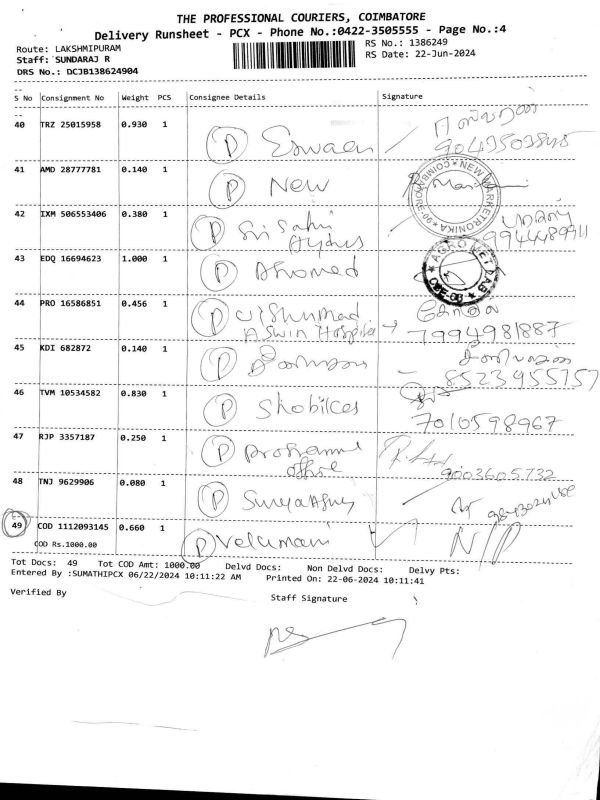 THE PROFESSIONAL COURIERS, COIMBATORE
Delivery Runsheet - PCX - Phone No.:0422-3505555 - Page No.:4
Route: LAKSHMIPURAM
RS No.: 1386249
Staff: SUNDARAJ R
RS Date: 22-Jun-2024
DRS No.: DCJB138624904
S No Consignment No Weight PCS Consignee Details Signature
40 TRZ 25015958 0.930 1 P Eswaen
41 AMD 28777781 0.140 1 P New
NEW MARKETRONIKA
42 IXM 506553406 0.380 1 P Sri Sahi
9944489911
43 EDQ 16694623 1.000 1 P Ahomed
44 PRO 16586851 0.456 1 P
Aswin Hospital → 7994981887
45 KDI 682872 0.140 1 P
8523955757
46 TVM 10534582 0.830 1 P
7010598967
47 RJP 3357187 0.250 1 P
office 9003605732
48 TNJ 9629906 0.080 1 P
49 COD 1112093145 0.660 1 P Velumani N/P
COD Rs.1000.00
Tot Docs: 49 Tot COD Amt: 1000.00 Delvd Docs: Non Delvd Docs: Delvy Pts:
Entered By :SUMATHIPCX 06/22/2024 10:11:22 AM Printed On: 22-06-2024 10:11:41
Verified By
Staff Signature